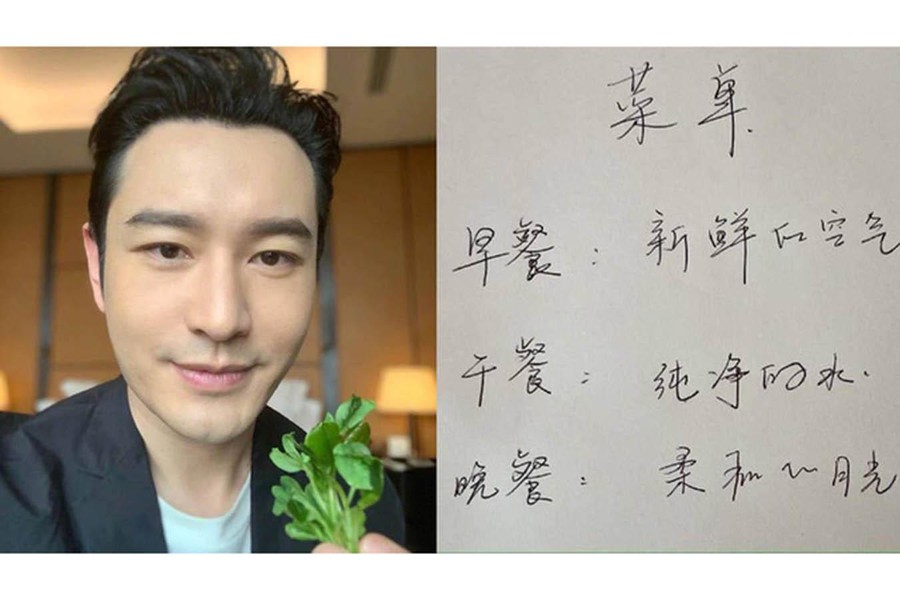 菜单.
早餐：新鲜的空气
午餐：纯净的水.
晚餐：柔和的月光